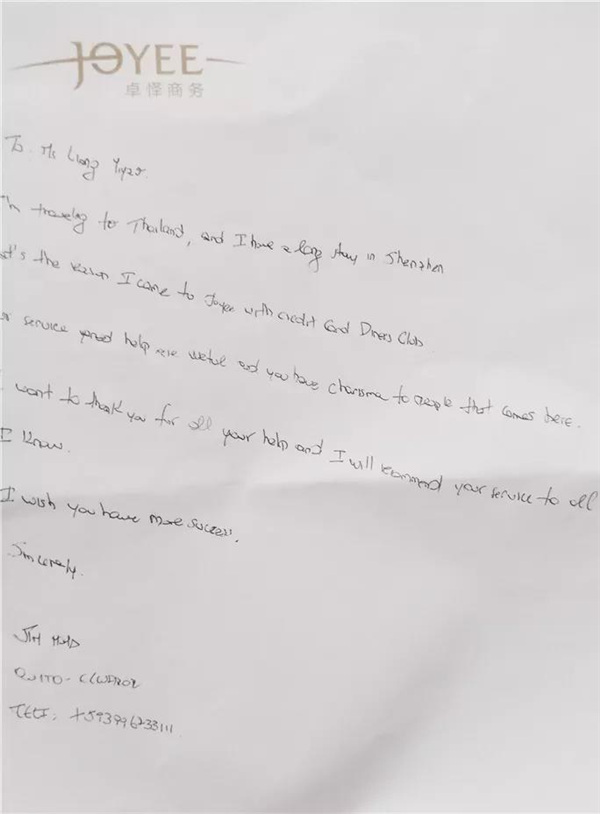 JOYEE
卓怿商务
To: Ms Liang
I'm traveling to Thailand, and I have a long stay in Shenzhen
that's the reason I came to Joyee with credit card Diners Club
service and help are and you have charisma to people that comes here.
I want to thank you for all your help and I will recommend your service to all
I know.
I wish you have more success.
Sincerely.
QUITO - ECUADOR